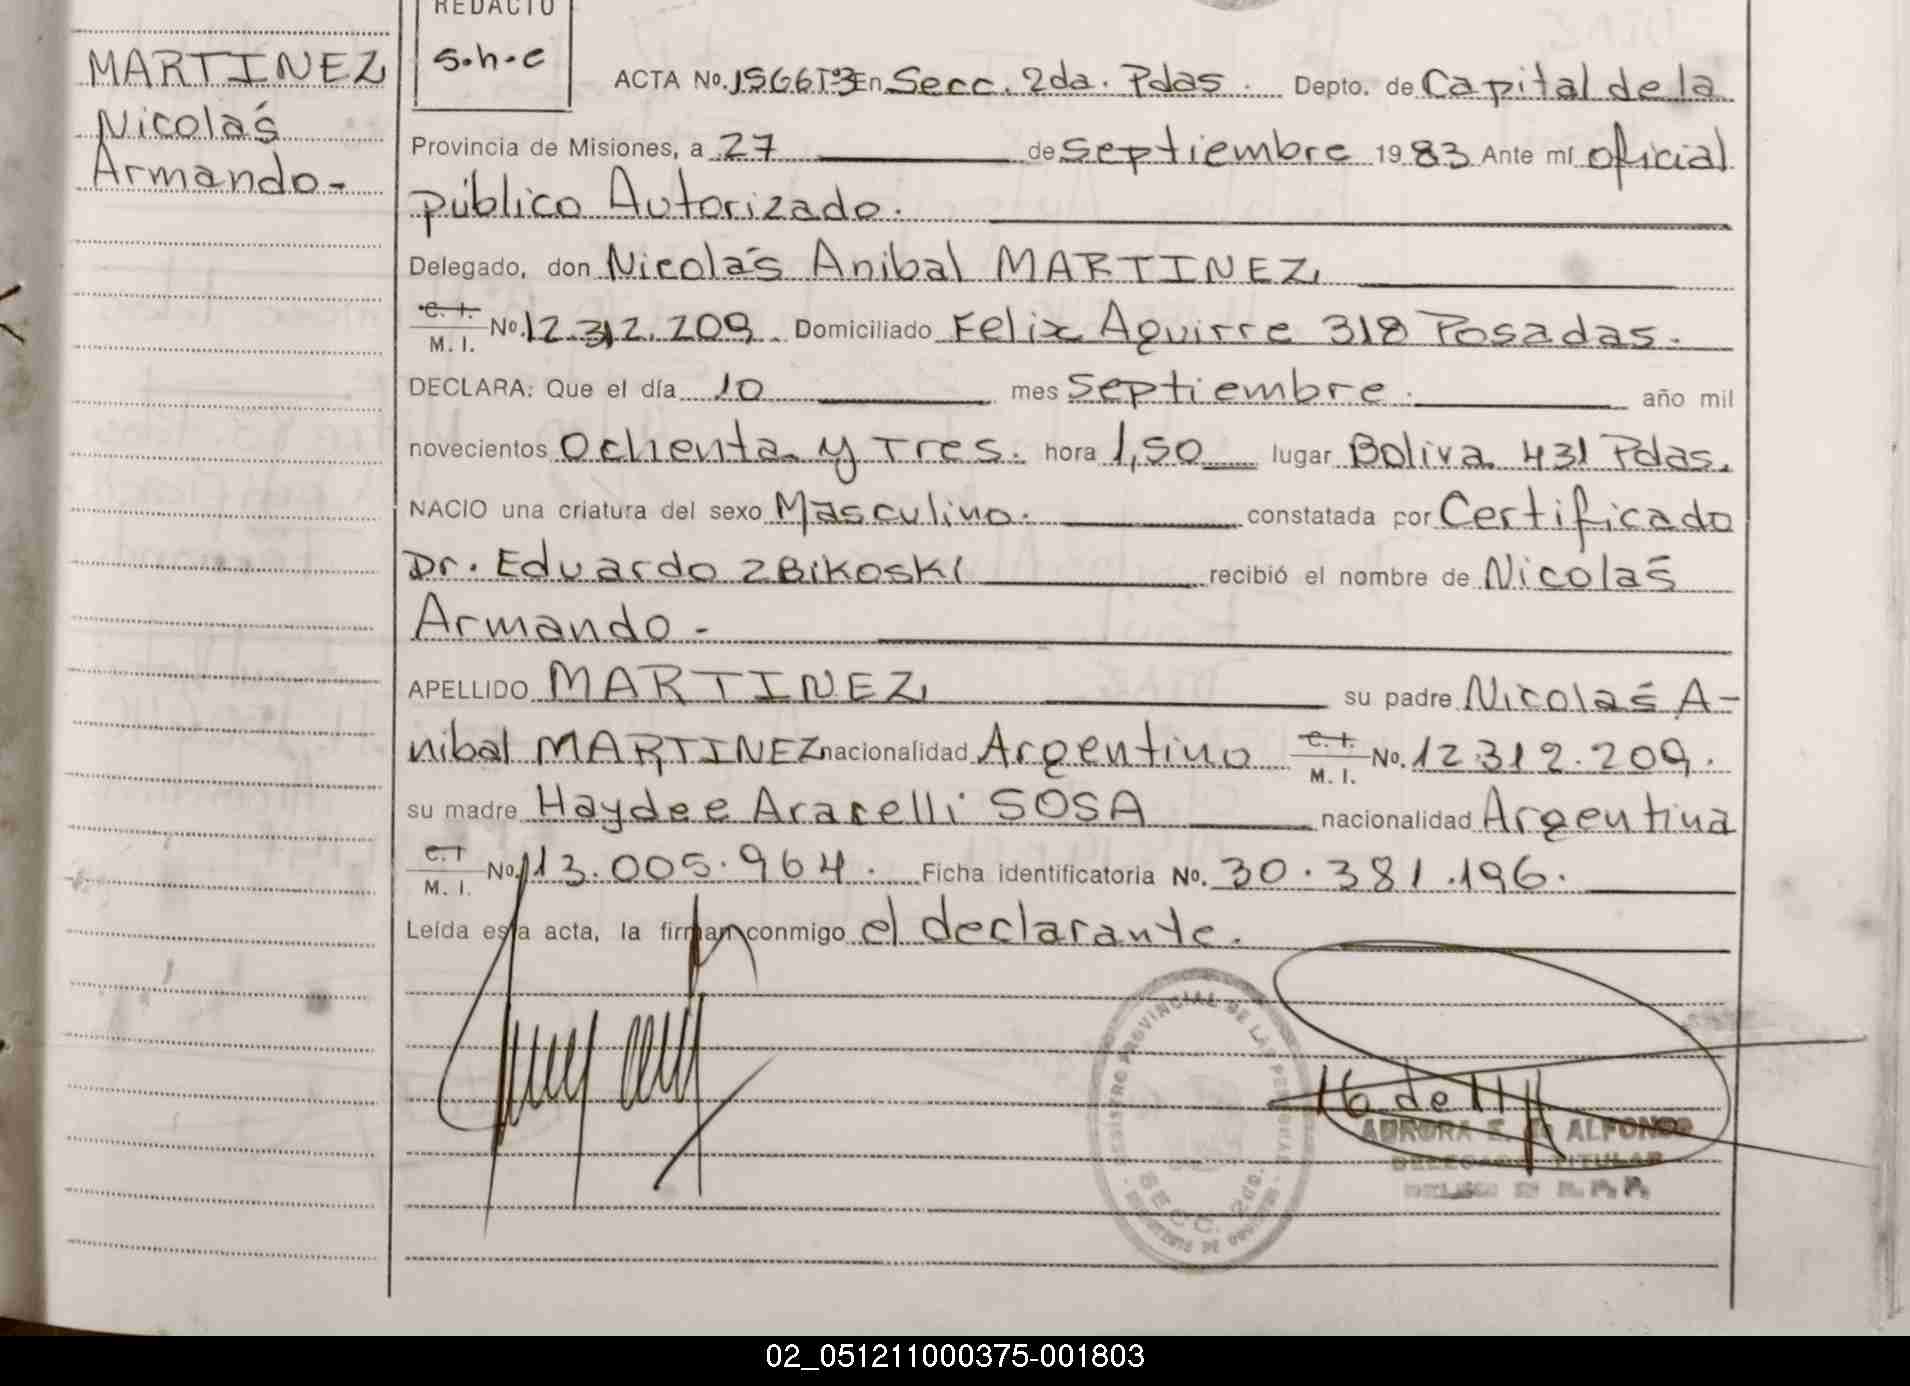 REDACTO
s.h.c
MARTINEZ
Nicolás
Armando-
ACTA No. 1566 Tº3 En Secc. 2da. Pdas. Depto. de Capital de la
Provincia de Misiones, a 27 de septiembre 19 83 Ante mí oficial
público Autorizado.
Delegado, don Nicolás Anibal MARTINEZ
C. I. M. I. No. 12.312.209. Domiciliado Felix Aguirre 318 Posadas.
DECLARA: Que el día 10 mes septiembre. año mil
novecientos Ochenta y Tres. hora 1,50 lugar Boliva 431 Pdas.
NACIO una criatura del sexo Masculino. constatada por Certificado
Dr. Eduardo ZBIKOSKI recibió el nombre de Nicolás
Armando -
APELLIDO MARTINEZ su padre Nicolás A-
nibal MARTINEZ nacionalidad Argentino C. I. M. I. No. 12.312.209.
su madre Haydee Aracelli SOSA nacionalidad Argentina
C. I M. I. No. 13.005.964. Ficha identificatoria No. 30.381.196.
Leída esta acta, la firman conmigo el declarante.
REGISTRO PROVINCIAL DE LAS PERSONAS
SECC. 2da.
AURORA E. ALFONSO
DELEGADO TITULAR
02_051211000375-001803